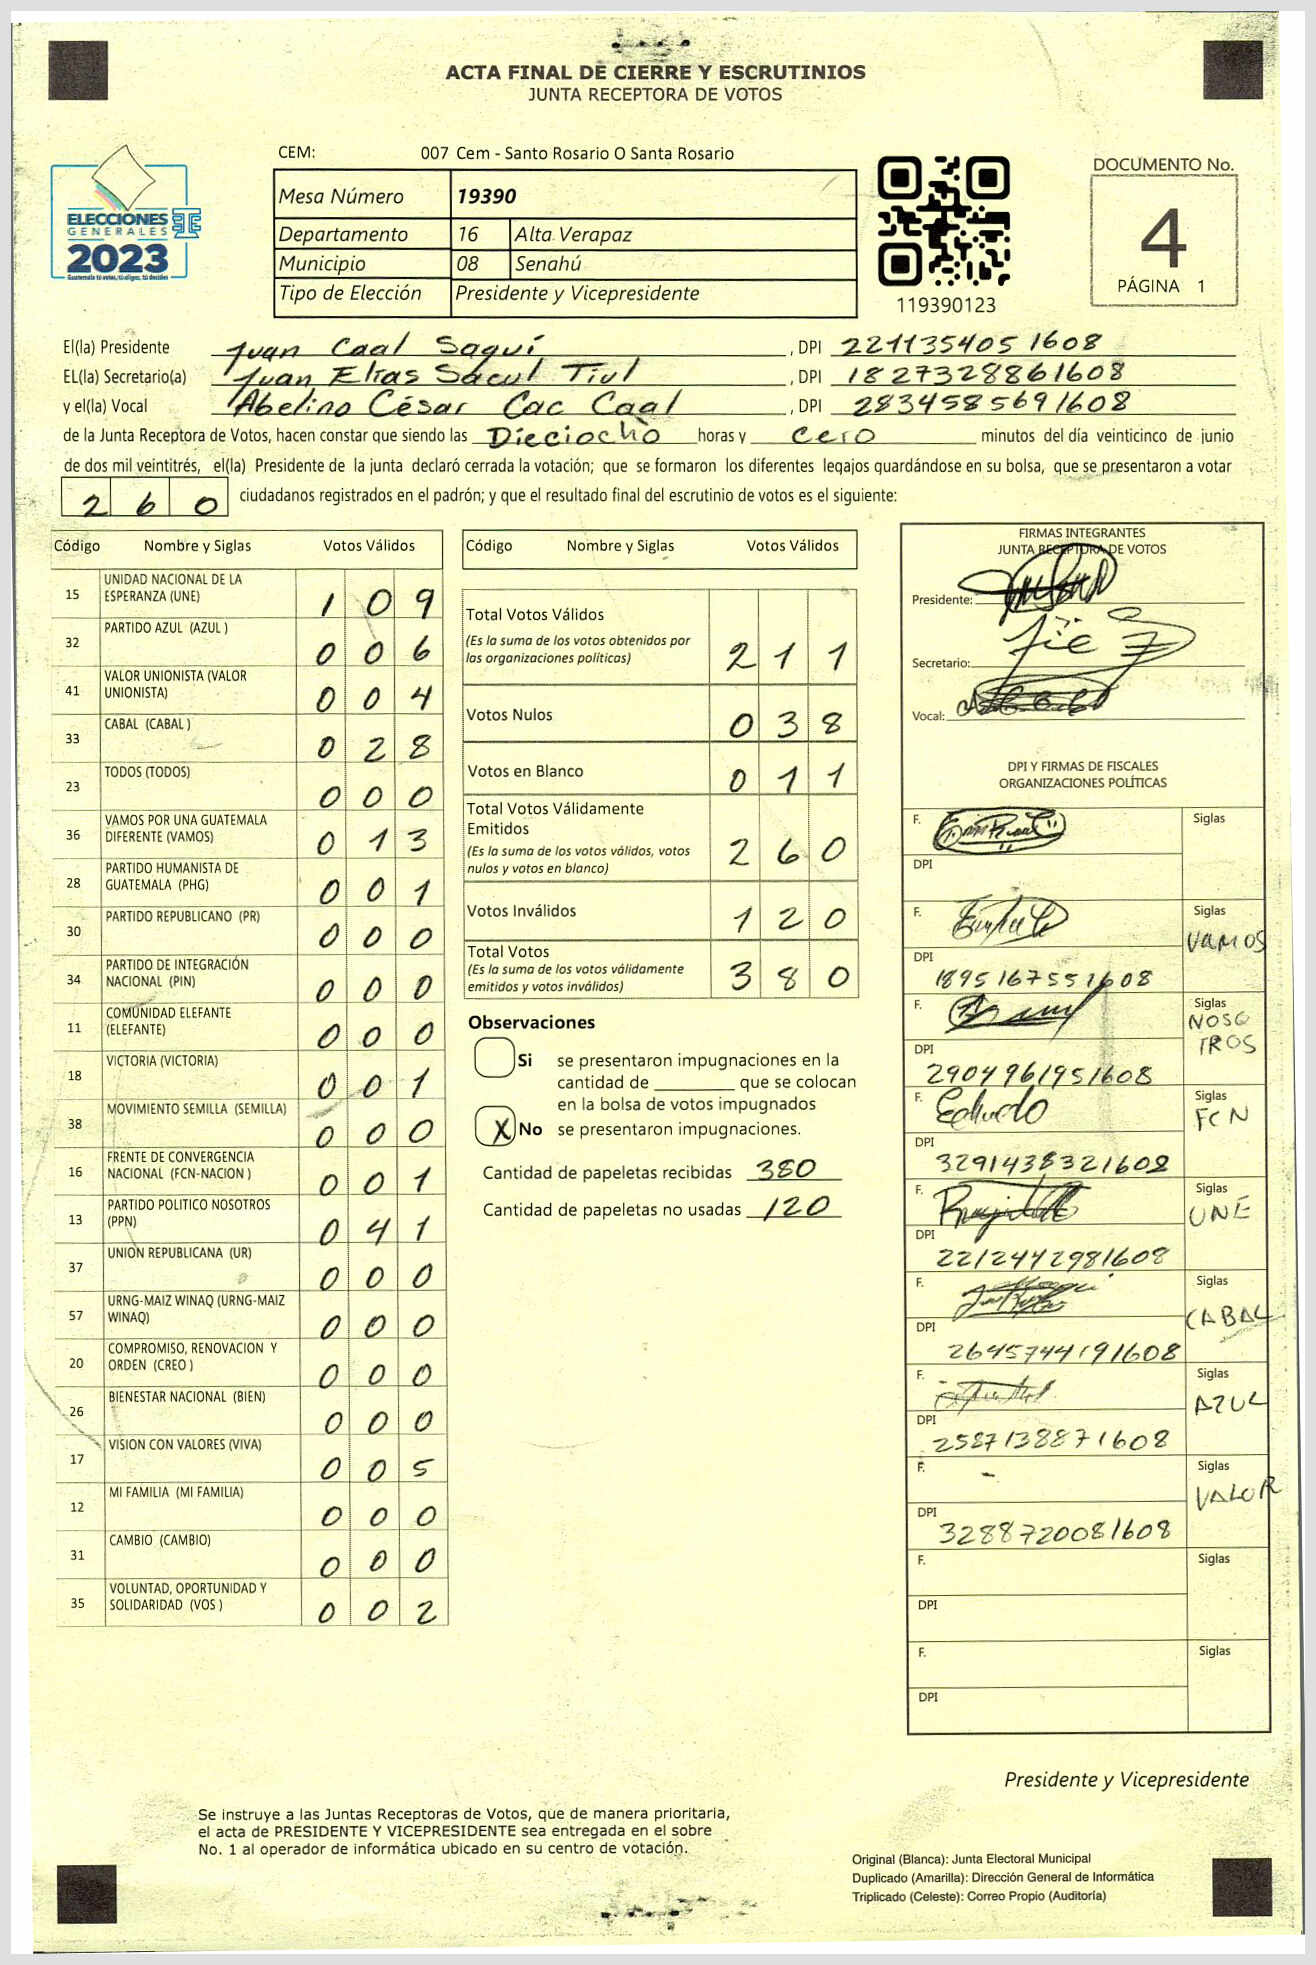 ACTA FINAL DE CIERRE Y ESCRUTINIOS
JUNTA RECEPTORA DE VOTOS
CEM: 007 Cem - Santo Rosario O Santa Rosario
ELECCIONES
GENERALES
2023
Guatemala tú votas, tú eliges, tú decides
Mesa Número 19390
Departamento 16 Alta Verapaz
Municipio 08 Senahú
Tipo de Elección Presidente y Vicepresidente
119390123
DOCUMENTO No.
4
PÁGINA 1
El(la) Presidente Juan Caal Saquí , DPI 2211354051608
EL(la) Secretario(a) Juan Elías Sacul Tiul , DPI 1827328861608
y el(la) Vocal Abelino César Cac Caal , DPI 2834585691608
de la Junta Receptora de Votos, hacen constar que siendo las Dieciocho horas y cero minutos del día veinticinco de junio
de dos mil veintitrés, el(la) Presidente de la junta declaró cerrada la votación; que se formaron los diferentes legajos guardándose en su bolsa, que se presentaron a votar
260 ciudadanos registrados en el padrón; y que el resultado final del escrutinio de votos es el siguiente:
Código Nombre y Siglas Votos Válidos
15 UNIDAD NACIONAL DE LA
ESPERANZA (UNE) 109
32 PARTIDO AZUL (AZUL ) 006
41 VALOR UNIONISTA (VALOR
UNIONISTA) 004
33 CABAL (CABAL ) 028
23 TODOS (TODOS) 000
36 VAMOS POR UNA GUATEMALA
DIFERENTE (VAMOS) 013
28 PARTIDO HUMANISTA DE
GUATEMALA (PHG) 001
30 PARTIDO REPUBLICANO (PR) 000
34 PARTIDO DE INTEGRACIÓN
NACIONAL (PIN) 000
11 COMUNIDAD ELEFANTE
(ELEFANTE) 000
18 VICTORIA (VICTORIA) 001
38 MOVIMIENTO SEMILLA (SEMILLA) 000
16 FRENTE DE CONVERGENCIA
NACIONAL (FCN-NACION ) 001
13 PARTIDO POLITICO NOSOTROS
(PPN) 041
37 UNION REPUBLICANA (UR) 000
57 URNG-MAIZ WINAQ (URNG-MAIZ
WINAQ) 000
20 COMPROMISO, RENOVACION Y
ORDEN (CREO ) 000
26 BIENESTAR NACIONAL (BIEN) 000
17 VISION CON VALORES (VIVA) 005
12 MI FAMILIA (MI FAMILIA) 000
31 CAMBIO (CAMBIO) 000
35 VOLUNTAD, OPORTUNIDAD Y
SOLIDARIDAD (VOS ) 002
Código Nombre y Siglas Votos Válidos
Total Votos Válidos
(Es la suma de los votos obtenidos por
las organizaciones políticas) 211
Votos Nulos 038
Votos en Blanco 011
Total Votos Válidamente
Emitidos
(Es la suma de los votos válidos, votos
nulos y votos en blanco) 260
Votos Inválidos 120
Total Votos
(Es la suma de los votos válidamente
emitidos y votos inválidos) 380
Observaciones
Si se presentaron impugnaciones en la
cantidad de ________ que se colocan
en la bolsa de votos impugnados
X No se presentaron impugnaciones.
Cantidad de papeletas recibidas 380
Cantidad de papeletas no usadas 120
FIRMAS INTEGRANTES
JUNTA RECEPTORA DE VOTOS
Presidente:
Secretario:
Vocal:
DPI Y FIRMAS DE FISCALES
ORGANIZACIONES POLÍTICAS
F. Siglas
DPI
F. Siglas VAMOS
DPI 1895167551608
F. Siglas NOSO
TROS
DPI 2904961951608
F. Siglas FCN
DPI 3291438321608
F. Siglas UNE
DPI 2212442981608
F. Siglas CABAL
DPI 2645744191608
F. Siglas AZUL
DPI 2587138871608
F. Siglas VALOR
DPI 3288720081608
F. Siglas
DPI
F. Siglas
DPI
Presidente y Vicepresidente
Se instruye a las Juntas Receptoras de Votos, que de manera prioritaria,
el acta de PRESIDENTE Y VICEPRESIDENTE sea entregada en el sobre
No. 1 al operador de informática ubicado en su centro de votación.
Original (Blanca): Junta Electoral Municipal
Duplicado (Amarilla): Dirección General de Informática
Triplicado (Celeste): Correo Propio (Auditoría)